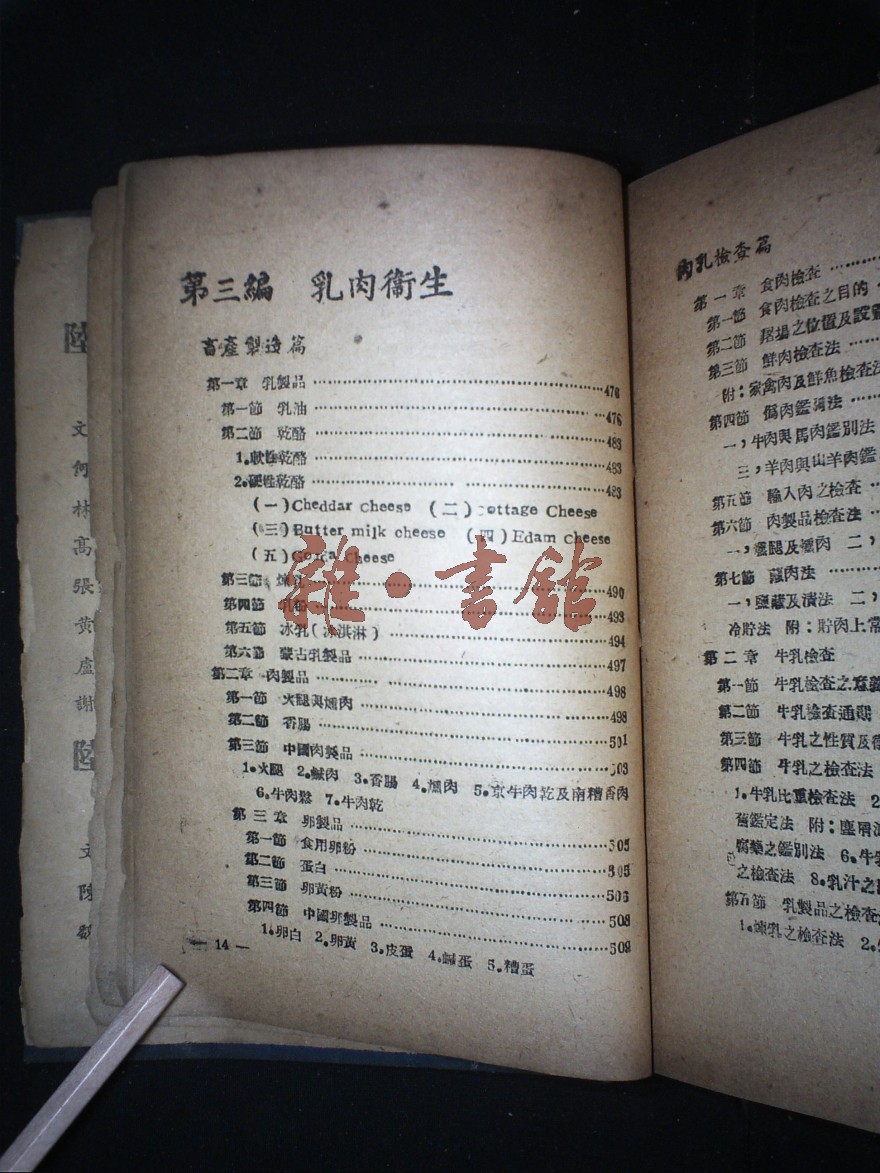 第三編 乳肉衞生
畜產製造篇
第一章 乳製品 476
第一節 乳油 476
第二節 乾酪 483
1.軟性乾酪 483
2.硬性乾酪 483
(一)Cheddar cheese (二) ottage Cheese
(三)Butter milk cheese (四)Edam cheese
(五) cheese
第三節 煉乳 490
第四節 乳粉 493
第五節 冰乳(冰淇淋) 494
第六節 蒙古乳製品 497
第二章 肉製品 498
第一節 火腿與燻肉 498
第二節 香腸 501
第三節 中國肉製品 503
1.火腿 2.鹹肉 3.香腸 4.燻肉 5.京牛肉乾及南糟香肉
6.牛肉鬆 7.牛肉乾
第三章 卵製品 505
第一節 食用卵粉 505
第二節 蛋白
第三節 卵黃粉 506
第四節 中國卵製品 508
1.卵白 2.卵黃 3.皮蛋 4.鹹蛋 5.糟蛋 509
— 14 —
肉乳檢查篇
第一章 食肉檢查
第一節 食肉檢查之目的
第二節 屠場之位置及設置
第三節 鮮肉檢查法
附:家禽肉及鮮魚檢查法
第四節 僞肉鑑別法
一,牛肉與馬肉鑑別法
三,羊肉與山羊肉鑑
第五節 輸入肉之檢查
第六節 肉製品檢查法
一,燻腿及燻肉 二,
第七節 藏肉法
一,鹽藏及漬法 二,
冷貯法 附:貯肉上常
第二章 牛乳檢查
第一節 牛乳檢查之意義
第二節 牛乳檢查通則
第三節 牛乳之性質及
第四節 牛乳之檢查法
1.牛乳比重檢查法 2
舊鑑定法 附:塵屑
腐藥之鑑別法 6.牛乳
之檢查法 8.乳汁之
第五節 乳製品之檢查
1.煉乳之檢查法 2.
雜·書館
陸
文
何
林
高
張
黃
盧
謝
陸
文
陳